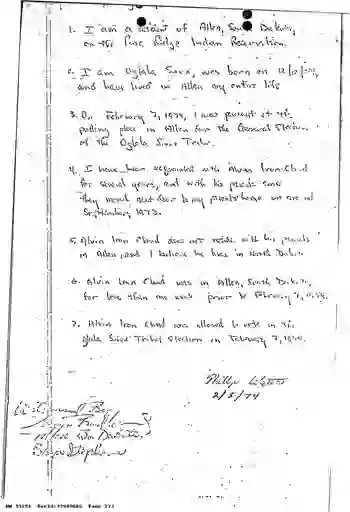 1. I am a resident of Allen, South Dakota,
on the Pine Ridge Indian Reservation.
2. I am Oglala Sioux, was born on 12/
and have lived in Allen my entire life
3. On February 7, 1974, I was present at the
polling place in Allen for the General Election
of the Oglala Sioux Tribe.
4. I have been acquainted with Alvin Iron Cloud
for several years, and with his parents since
they moved next door to my parents home on or
September, 1973.
5. Alvin Iron Cloud does not reside with his parents
in Allen, and I believe he lives in North Dakota.
6. Alvin Iron Cloud was in Allen, South Dakota,
for less than one week prior to February 7, 1974.
7. Alvin Iron Cloud was allowed to vote in the
Oglala Sioux Tribal Election on February 7, 1974.
Phillip
2/8/74
Stephens
Page 273